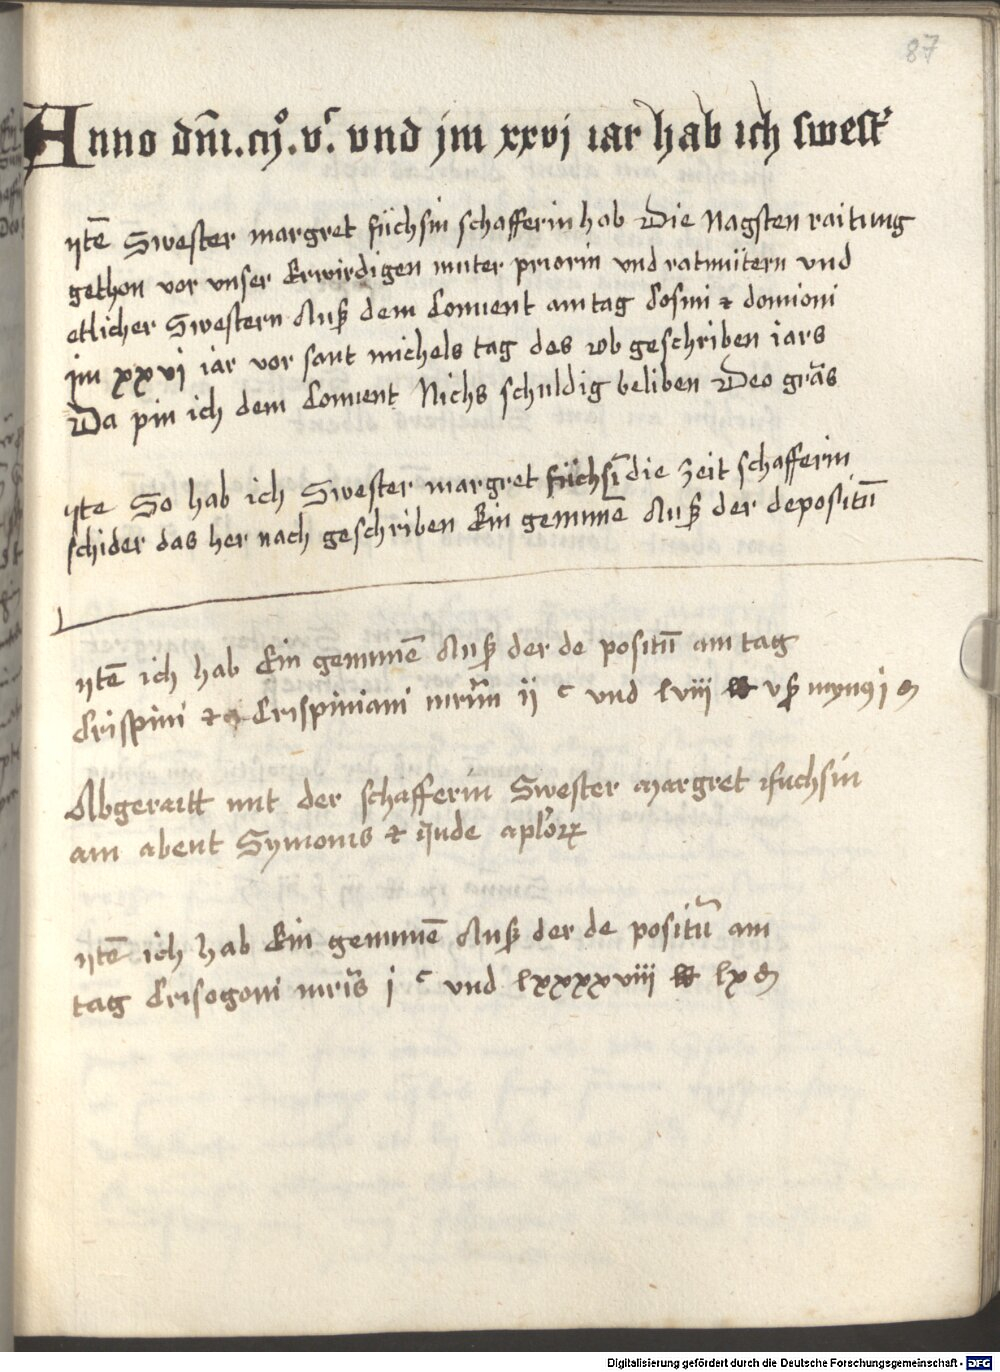 87
Anno dm̄. m°. vc. vnd jm xxvj iar hab ich swest'
ytē Swester margret füchsin schafferin hab Die Nagsten raitung
gethon vor vnser Erwirdigen muter priorin vnd ratmütern vnd
etlicher Swestern Auß dem Conuent am tag Cosmi & domioni
jm xxvj iar vor sant michels tag des ob geschriben iars
Da pin ich dem Conuent Nichs schuldig beliben Deo grās
yte So hab ich Swester margret füchsī die zeit schafferin
schider das her nach geschriben Ein genumē Auß der depositū
ytē ich hab Ein genumē Auß der de positū am tag
Crispini & Crispiniani mrm̄ ij c vnd lviij lb vß mynus j d
Abgeraitt mit der schafferin Swester margret fuchsin
am abent Symonis & Jude aplorꝝ
ytē ich hab Ein genumē Auß der de positū am
tag Crisogoni mrīs j c vnd lxxxxviij lb lx d
Digitalisierung gefördert durch die Deutsche Forschungsgemeinschaft - DFG